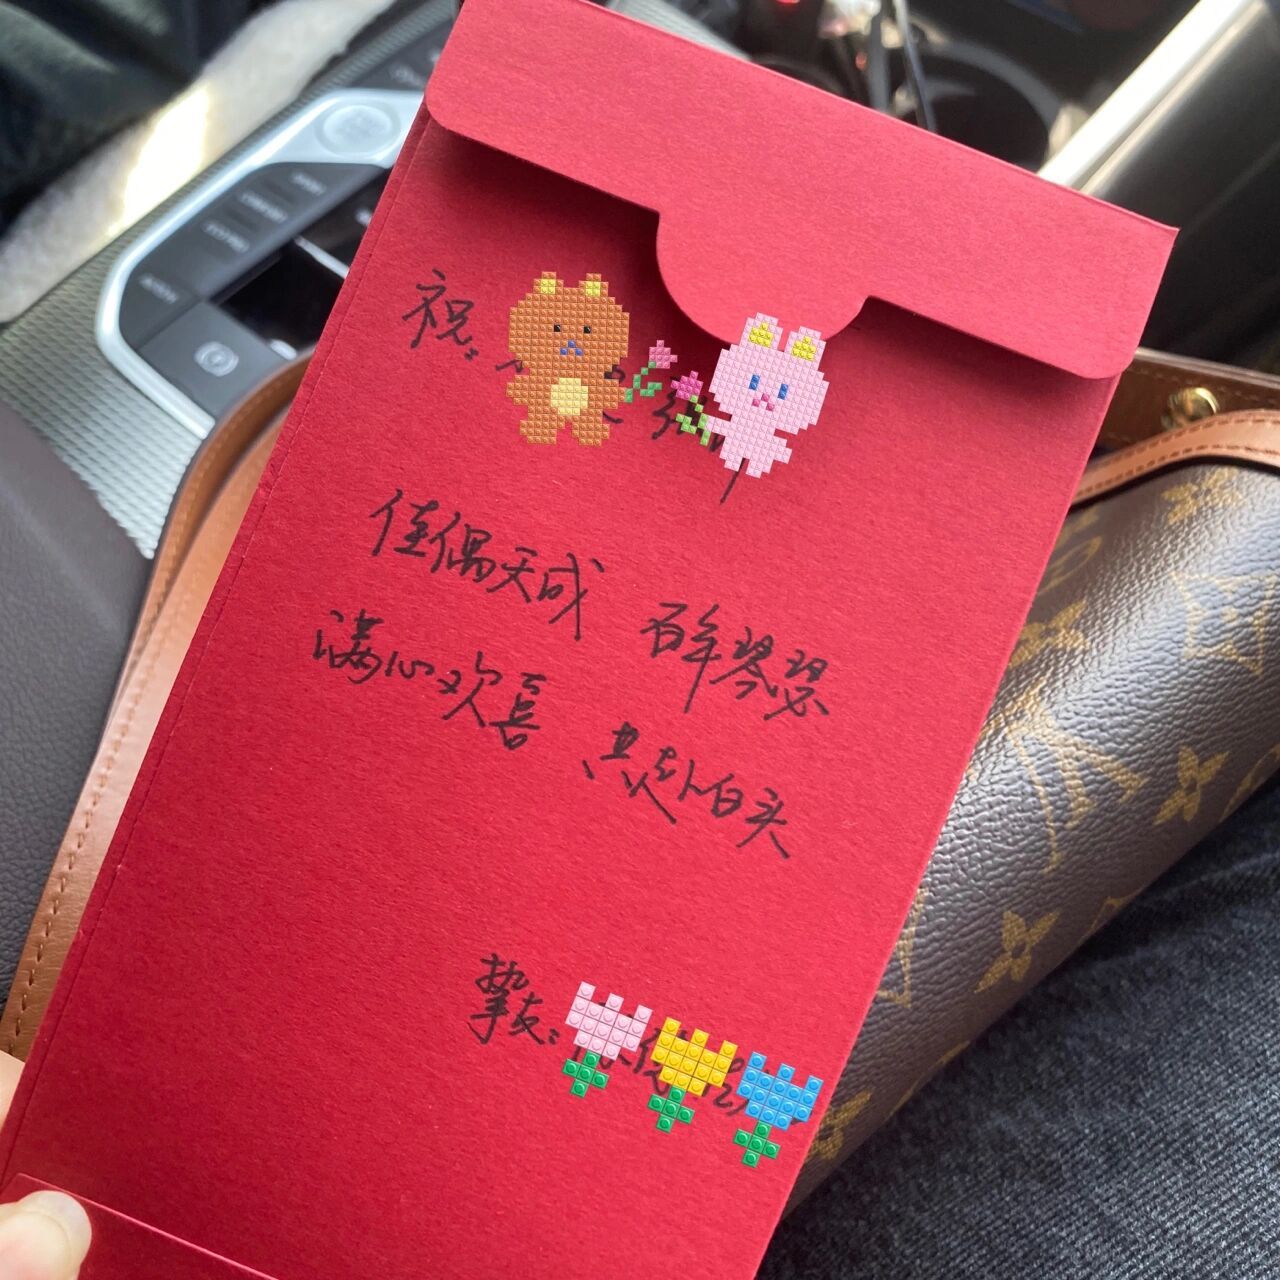 祝:
佳偶天成 百年琴瑟
满心欢喜 共赴白头
挚友: